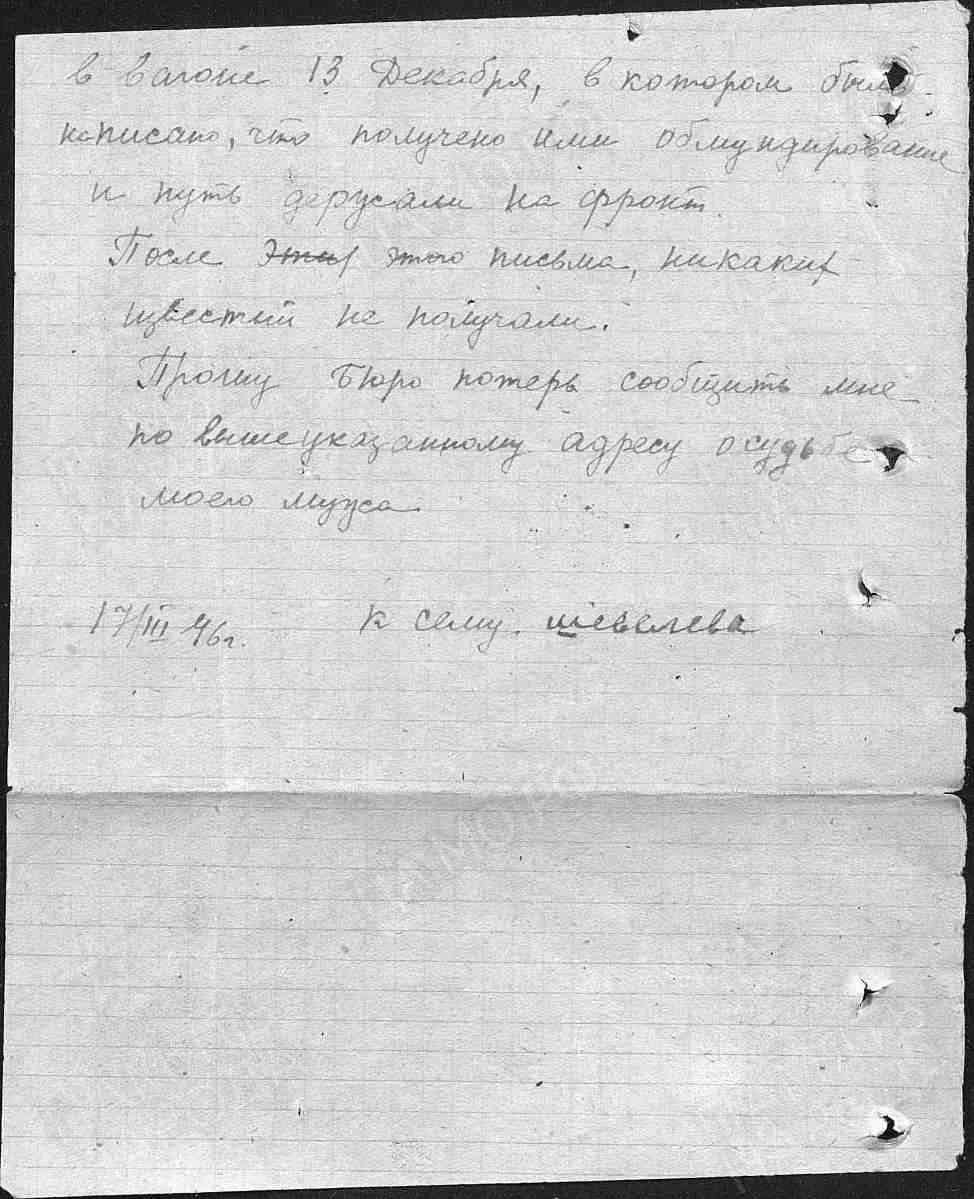 в вагоне 13 Декабря, в котором было
написано, что получено ими обмундирование
и путь держали на фронт.
После этих этого письма, никаких
известий не получали.
Прошу Бюро потерь сообщить мне
по вышеуказанному адресу о судьбе
моего мужа.
17/III 46г. К сему. Шевелева